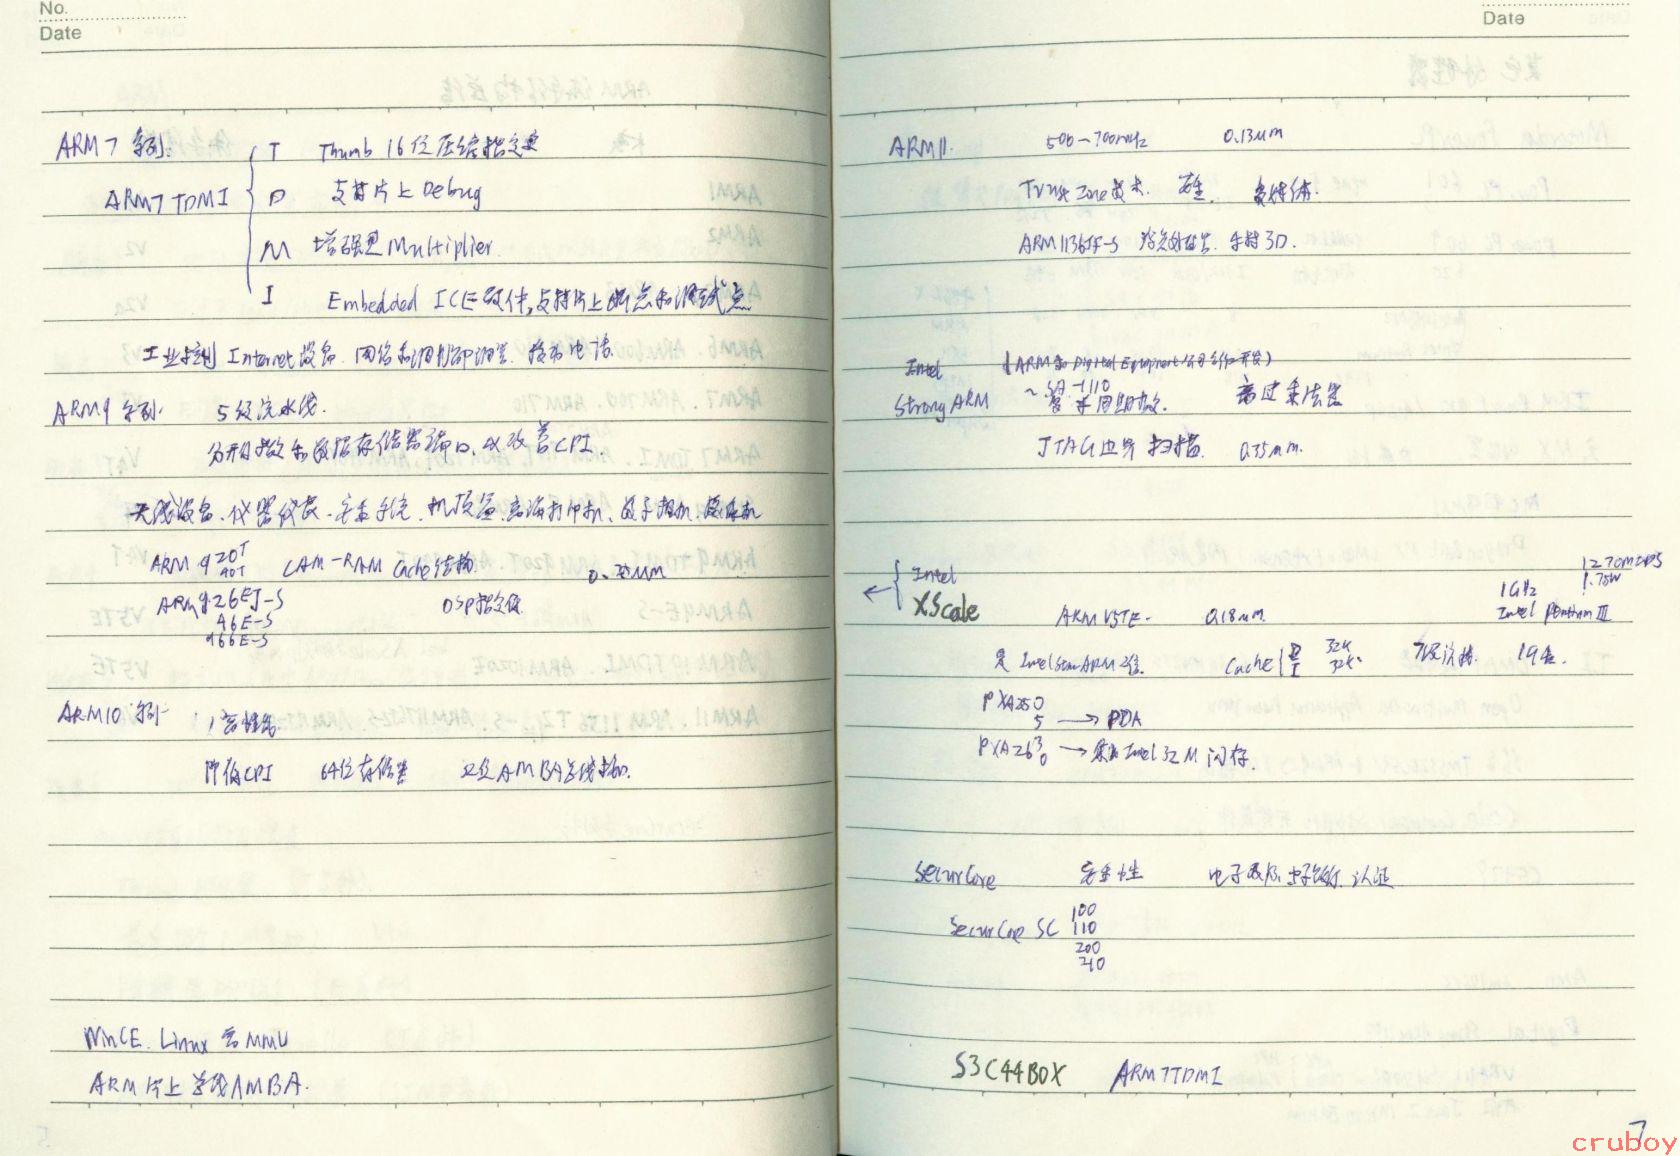 No.
Date
ARM7系列:
ARM7TDMI
T Thumb 16位压缩指令集
D 支持片上Debug
M 增强型Multiplier.
I Embedded ICE硬件,支持片上断点和调试点
工业控制 Internet设备. 网络和调制解调器. 移动电话.
ARM9系列. 5级流水线.
分开指令和数据存储器端口,以改善CPI.
无线设备、仪器仪表、安全系统、机顶盒、高端打印机、数字相机、摄像机
ARM 920T 40T CAM-RAM Cache结构
ARM926EJ-S DSP指令集
46E-S
966E-S
ARM10系列 高性能
降低CPI 64位存储器 AMBA总线
WinCE. Linux 含MMU
ARM片上总线AMBA.
5
Date
ARM11. 500~700MHz 0.13μm
TrustZone技术. 多媒体.
ARM1136JF-S 支持3D.
Intel (ARM和Digital Equipment公司合作开发)
StrongARM ~SA-1110 乘法器
JTAG边界扫描. 0.35μm.
Intel
XScale ARM V5TE. 0.18μm. 1GHz 1.75W 1270MIPS
Intel Pentium III
是Intel StrongARM Cache D 32K I 32K. 7级流水线.
PXA250
5 → PDA
PXA263
0 → Intel 32M闪存.
SecurCore 安全性 电子 认证
SecurCore SC 100
110
200
210
S3C44B0X ARM7TDMI
7
cruboy